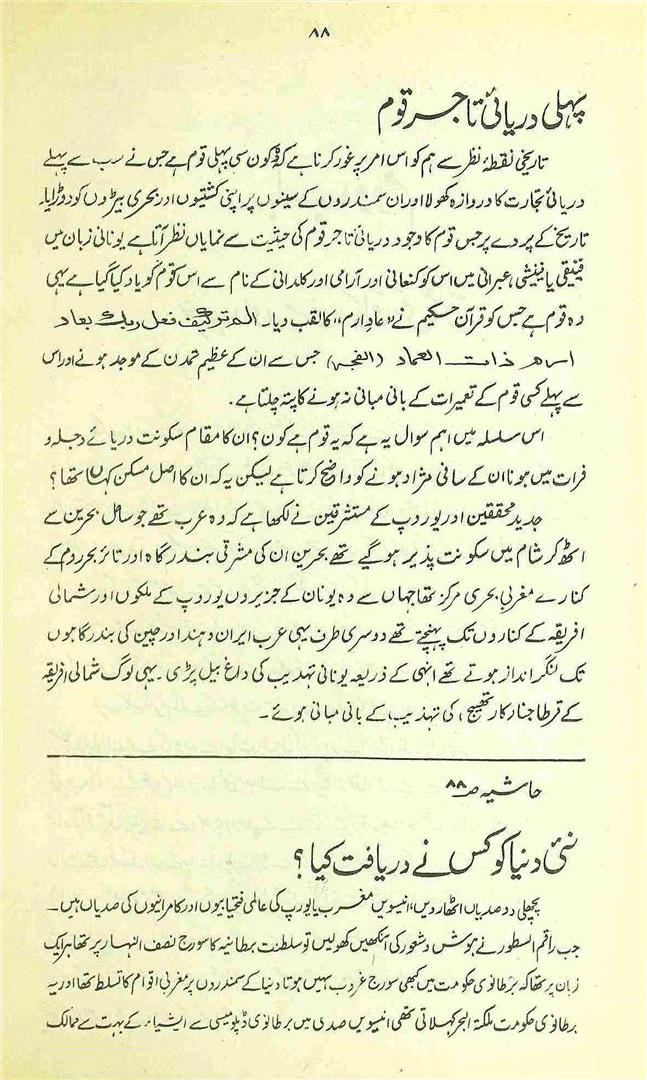 ۸۸
پہلی دریائی تاجر قوم
تاریخی نقطۂ نظر سے ہم کو اس امر پر غور کرنا ہے کہ وہ کون سی پہلی قوم ہے جس نے سب سے پہلے
دریائی تجارت کا دروازہ کھولا اور ان سمندروں کے سینوں پر اپنی کشتیوں اور بحری بیڑوں کو دوڑایا۔
تاریخ کے پردے پر جس قوم کا وجود دریائی تاجر قوم کی حیثیت سے نمایاں نظر آتا ہے یونانی زبان میں
فنیقی یا فینشی، عبرانی میں اس کو کنعانی اور آرامی اور کلدانی کے نام سے اس قوم کو یاد کیا گیا ہے یہی
وہ قوم ہے جس کو قرآن حکیم نے "عاد ارم" کا لقب دیا۔ الم تر کیف فعل ربک بعاد
ارم ذات العماد (الفجر) جس سے ان کے عظیم تمدن کے موجد ہونے اور اس
سے پہلے کسی قوم کے تعمیرات کے بانی مبانی نہ ہونے کا پتہ چلتا ہے۔
اس سلسلہ میں اہم سوال یہ ہے کہ یہ قوم ہے کون؟ ان کا مقام سکونت دریائے دجلہ و
فرات میں ہونا ان کے سامی نژاد ہونے کو واضح کرتا ہے لیکن یہ کہ ان کا اصل مسکن کہاں تھا؟
جدید محققین اور یوروپ کے مستشرقین نے لکھا ہے کہ وہ عرب تھے جو ساحل بحرین سے
اٹھ کر شام میں سکونت پذیر ہوگیے تھے بحرین ان کی مشرقی بندرگاہ اور تائر بحر روم کے
کنارے مغربی بحری مرکز تھا جہاں سے وہ یونان کے جزیروں یوروپ کے ملکوں اور شمالی
افریقہ کے کناروں تک پہنچتے تھے دوسری طرف یہی عرب ایران و ہند اور چین کی بندرگاہوں
تک لنگر انداز ہوتے تھے انہی کے ذریعہ یونانی تہذیب کی داغ بیل پڑی۔ یہی لوگ شمالی افریقہ
کے قرطاجنا (کارتھیج) کی تہذیب کے بانی مبانی ہوئے۔
حاشیہ صـ ۸۸
نئی دنیا کو کس نے دریافت کیا؟
پچھلی دو صدیاں اٹھارویں، انیسویں مغرب یا یورپ کی عالمی فتحیابیوں اور کامرانیوں کی صدیاں ہیں۔
جب راقم السطور نے ہوش و شعور کی آنکھیں کھولیں تو سلطنت برطانیہ کا سورج نصف النہار پر تھا ہر ایک
زبان پر تھا کہ برطانوی حکومت میں کبھی سورج غروب نہیں ہوتا دنیا کے سمندروں پر مغربی اقوام کا تسلط تھا اور یہ
برطانوی حکومت ملکۃ البحر کہلاتی تھی انیسویں صدی میں برطانوی ڈپلومیسی سے ایشیاء کے بہت سے ممالک